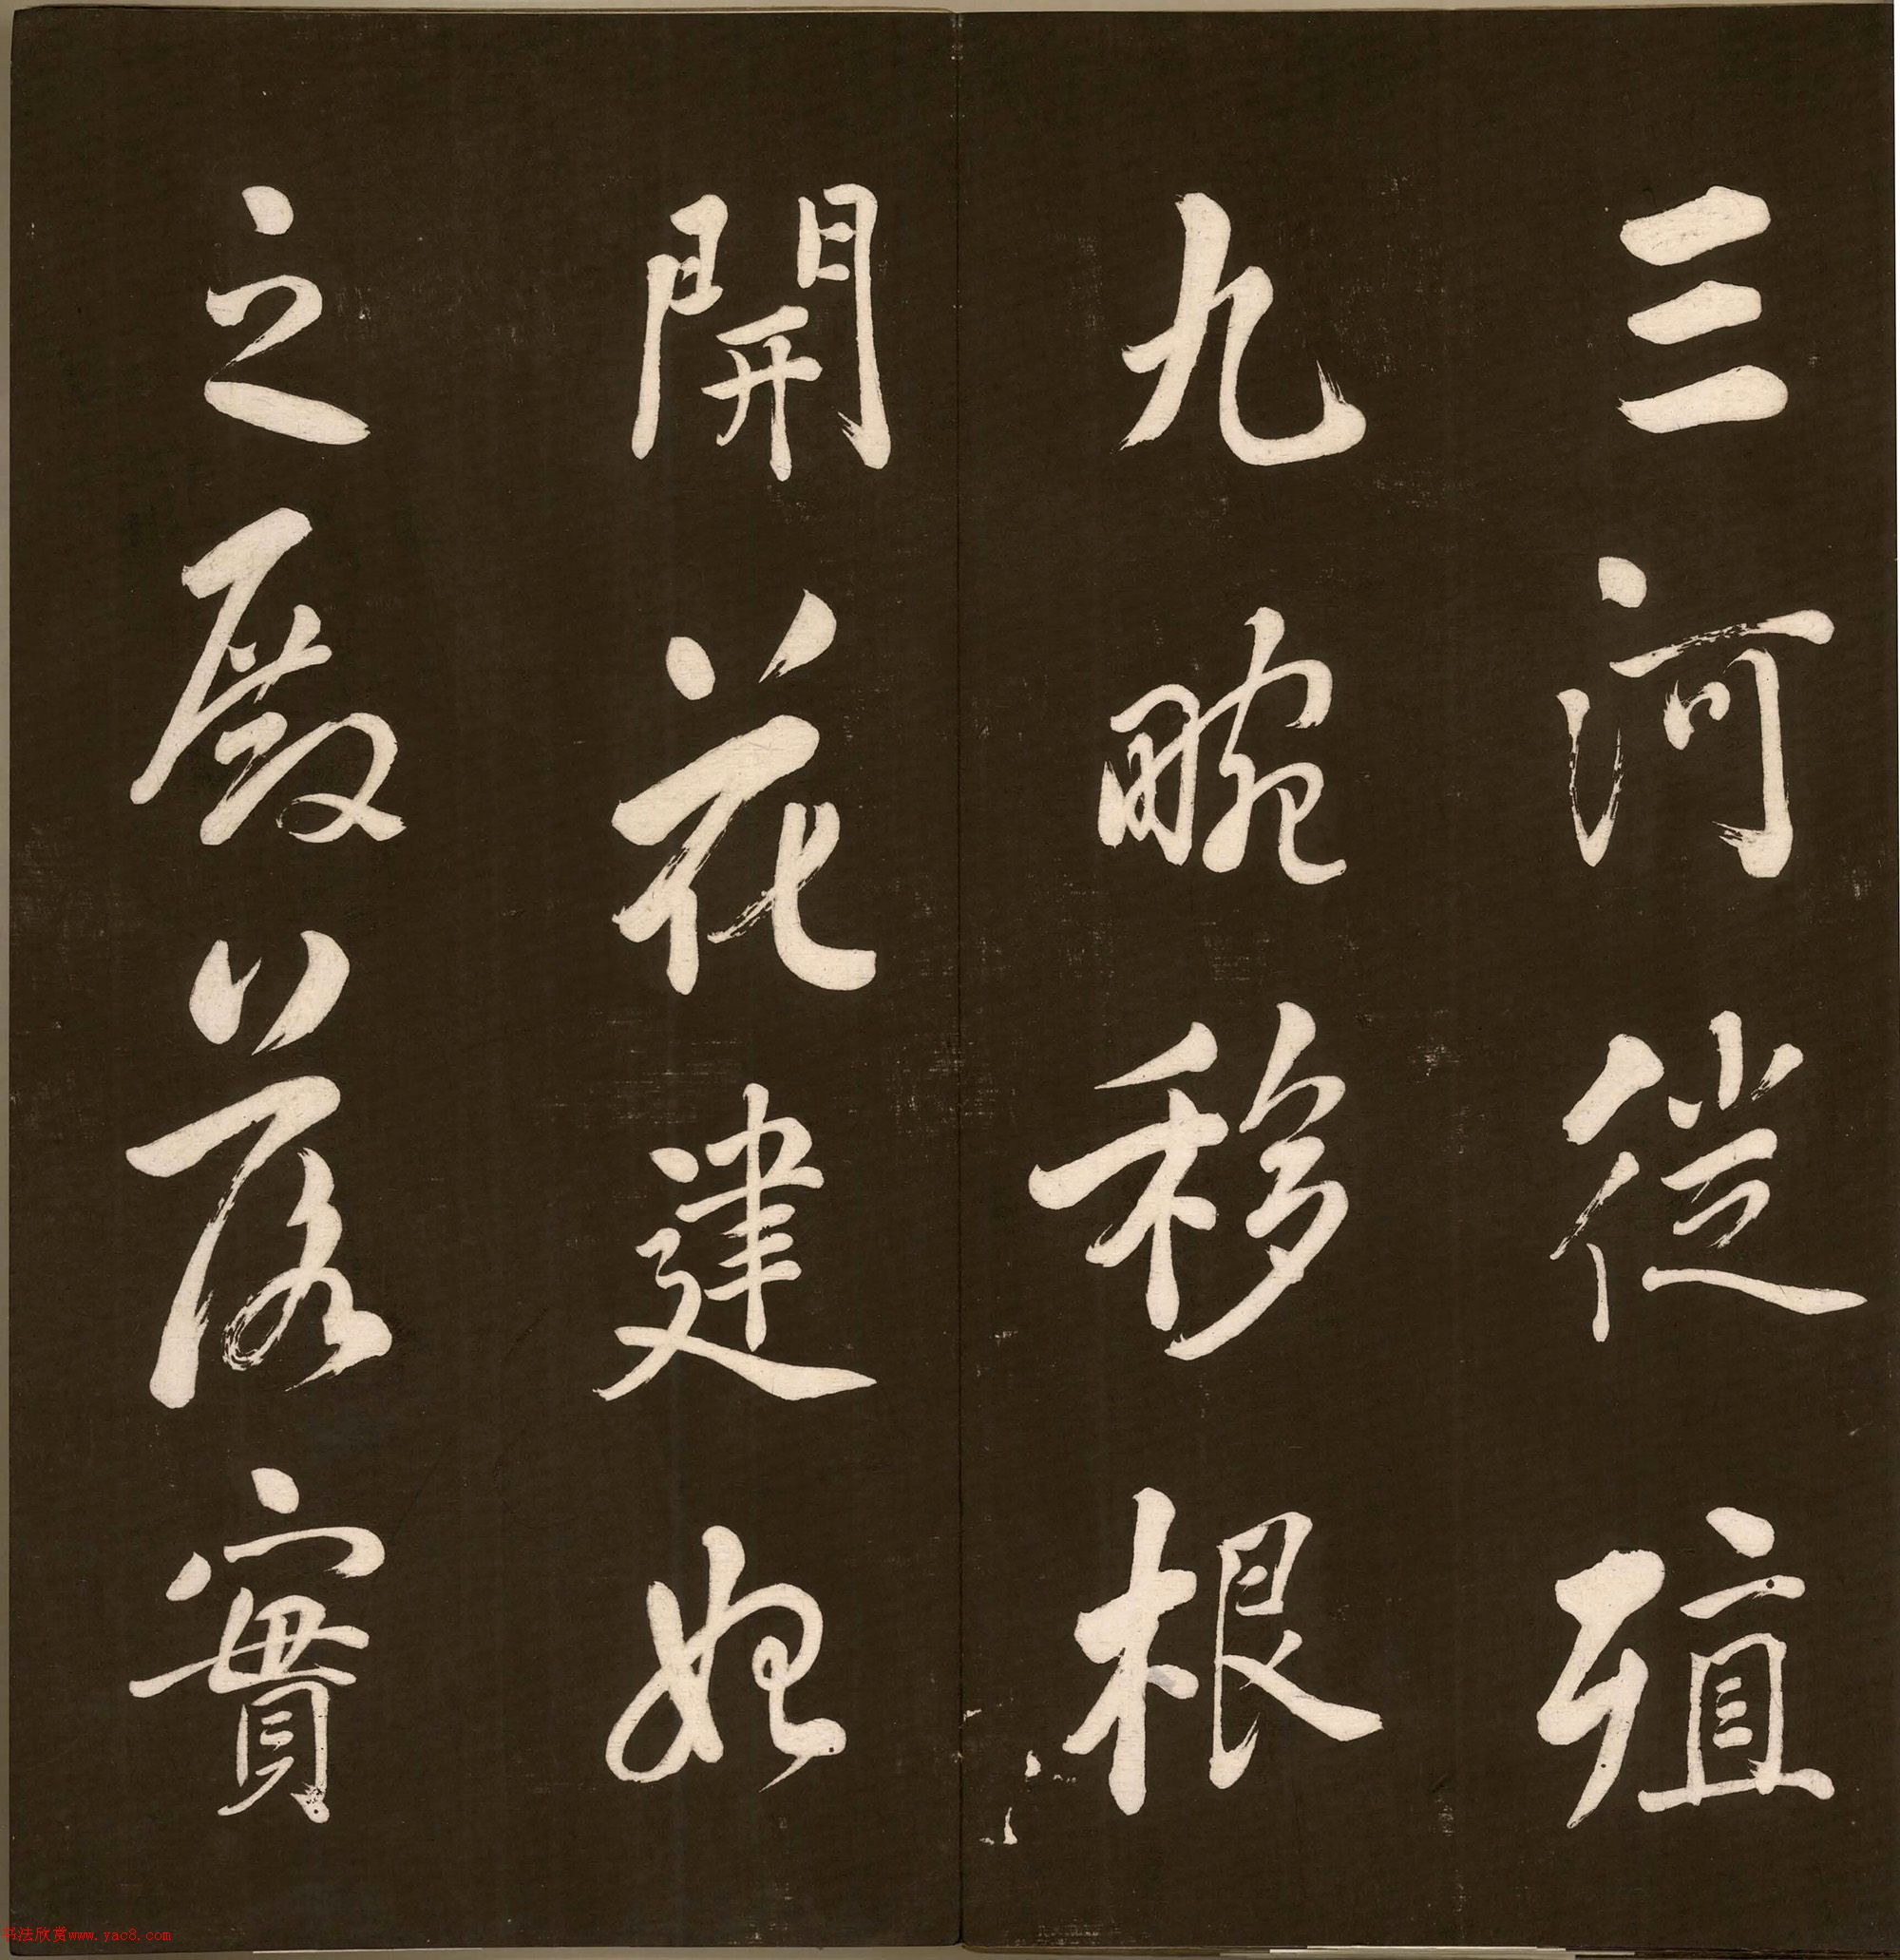 三河徙殖
九畹移根
開花建始
之殿落實
书法欣赏www.yac8.com